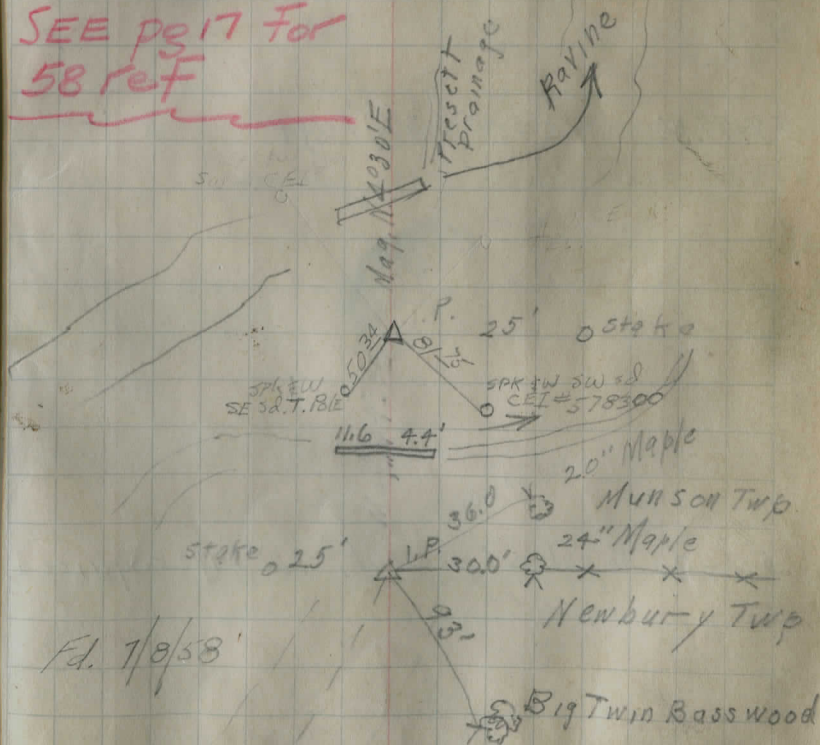 SEE pg 17 For
58 ref
Present
Drainage
Ravine
Mag. N4°30'E
CEI
P.
25'
stake
50.34
81.75
Spk & W
SE Sd. T. Pole
SPK & W SW sd
CEI # 578300
11.6 4.4'
20" Maple
36.0
Munson Twp.
24" Maple
stake 25'
I.P.
30.0'
Newbury Twp
93'
Fd. 7/8/58
Big Twin Basswood